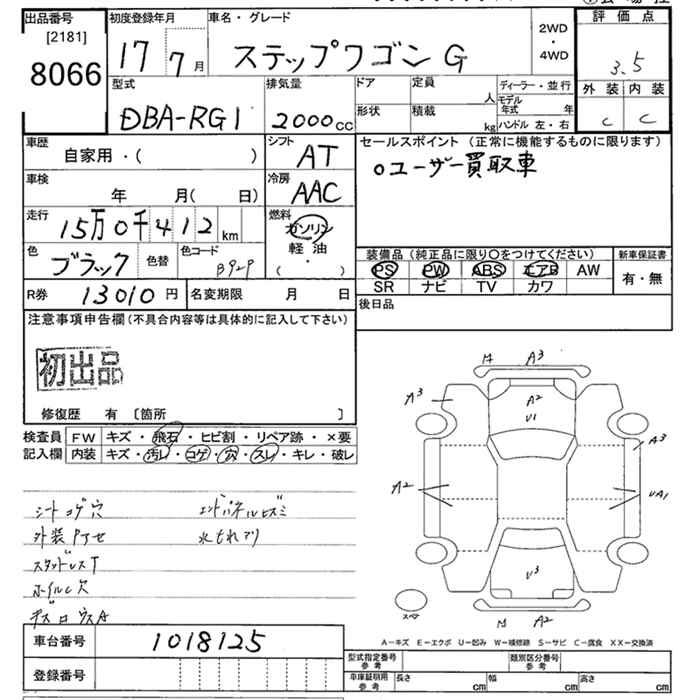 出品番号
[2181]
8066
初度登録年月
17 7月
車名・グレード
ステップワゴン G
2WD
・
4WD
評価点
3.5
外装 内装
C C
型式
DBA-RG1
排気量
2000cc
ドア
定員
人
形状
積載
kg
ディーラー・並行
モデル年式 年
ハンドル 左・右
車歴
自家用・( )
シフト
AT
セールスポイント (正常に機能するものに限ります)
○ユーザー買取車
車検
年 月( 日)
冷房
AAC
走行
15万0千412km
燃料
ガソリン
軽油
( ・ )
色
ブラック
色替
色コード
B92P
装備品(純正品に限り○をつけてください)
PS PW ABS エアB AW
SR ナビ TV カワ
新車保証書
有・無
R券
13010円
名変期限 月 日
後日品
注意事項申告欄(不具合内容等は具体的に記入して下さい)
初出品
修復歴 有 〔箇所 〕
検査員
記入欄
FW キズ・飛石・ヒビ割・リペア跡・×要
内装 キズ・汚レ・コゲ・穴・スレ・キレ・破レ
シートコゲ穴
外装Pアセ
スタッドレスT
ホイルC欠
エンドパネルヒズミ
水もれアリ
A3
A2
U1
A3
A2
A3
UA1
U3
A2
スペア
A-キズ E-エクボ U-凹み W-補修跡 S-サビ C-腐食 XX-交換済
車台番号
1018125
登録番号
型式指定番号
参考
類別区分番号
参考
車庫証明用
参考
長さ cm
幅 cm
高さ cm